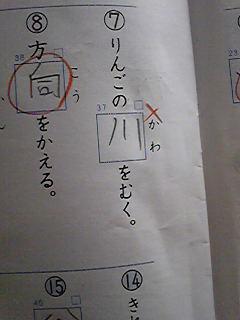 ⑦りんごの川をむく。
かわ
37
⑧方向をかえる。
こう
38
⑭き
⑮
45
23